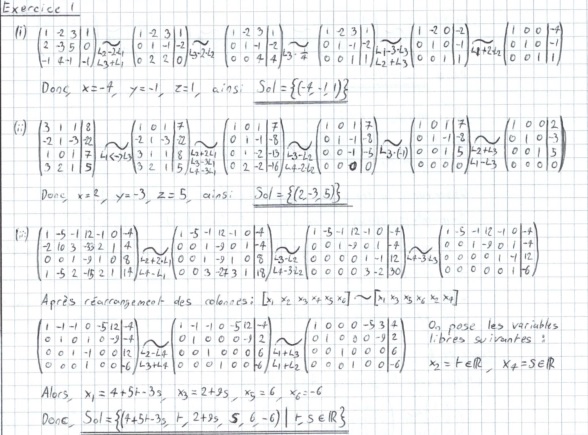 Exercice 1
(i) (1 -2 3 | 1; 2 -3 5 | 0; -1 4 -1 | -1) ~ L2-2L1 L3+L1 (1 -2 3 | 1; 0 1 -1 | -2; 0 2 2 | 0) ~ L3-2L2 (1 -2 3 | 1; 0 1 -1 | -2; 0 0 4 | 4) ~ (1 -2 3 | 1; 0 1 -1 | -2; 0 0 1 | 1) ~ L1-3L3 L2+L3 (1 -2 0 | -2; 0 1 0 | -1; 0 0 1 | 1) ~ L1+2L2 (1 0 0 | -4; 0 1 0 | -1; 0 0 1 | 1)
Donc, x=-4, y=-1, z=1, ainsi Sol={(-4,-1,1)}
(ii) (3 1 1 | 8; -2 1 -3 | -22; 1 0 1 | 7; 3 2 1 | 5) ~ L1<->L3 (1 0 1 | 7; -2 1 -3 | -22; 3 1 1 | 8; 3 2 1 | 5) ~ L2+2L1 L3-3L1 L4-3L1 (1 0 1 | 7; 0 1 -1 | -8; 0 1 -2 | -13; 0 2 -2 | -16) ~ L3-L2 L4-2L2 (1 0 1 | 7; 0 1 -1 | -8; 0 0 -1 | -5; 0 0 0 | 0) ~ L3·(-1) (1 0 1 | 7; 0 1 -1 | -8; 0 0 1 | 5; 0 0 0 | 0) ~ L2+L3 L1-L3 (1 0 0 | 2; 0 1 0 | -3; 0 0 1 | 5; 0 0 0 | 0)
Donc, x=2, y=-3, z=5, ainsi Sol={(2,-3,5)}
(1 -5 -1 12 -1 0 | -4; -2 10 3 -33 2 1 | 4; 0 0 1 -9 1 0 | 8; 1 -5 2 -15 2 1 | 14) ~ L2+2L1 L4-L1 (1 -5 -1 12 -1 0 | -4; 0 0 1 -9 0 1 | -4; 0 0 1 -9 1 0 | 8; 0 0 3 -27 3 1 | 18) ~ L3-L2 L4-3L2 (1 -5 -1 12 -1 0 | -4; 0 0 1 -9 0 1 | -4; 0 0 0 0 1 -1 | 12; 0 0 0 0 3 -2 | 30) ~ L4-3L3 (1 -5 -1 12 -1 0 | -4; 0 0 1 -9 0 1 | -4; 0 0 0 0 1 -1 | 12; 0 0 0 0 0 1 | -6)
Après réarrangement des colonnes: [x1 x2 x3 x4 x5 x6] ~> [x1 x3 x5 x6 x2 x4]
(1 -1 -1 0 -5 12 | -4; 0 1 0 1 0 -9 | -4; 0 0 1 -1 0 0 | 12; 0 0 0 1 0 0 | -6) ~ L2-L4 L3+L4 (1 -1 -1 0 -5 12 | -4; 0 1 0 0 0 -9 | 2; 0 0 1 0 0 0 | 6; 0 0 0 1 0 0 | -6) ~ L1+L3 L1+L2 (1 0 0 0 -5 3 | 4; 0 1 0 0 0 -9 | 2; 0 0 1 0 0 0 | 6; 0 0 0 1 0 0 | -6)
On pose les variables
libres suivantes :
x2 = t ∈ ℝ, x4 = s ∈ ℝ
Alors, x1 = 4+5t-3s, x3 = 2+9s, x5 = 6, x6 = -6
Donc, Sol={(4+5t-3s, t, 2+9s, s, 6, -6) | t, s ∈ ℝ}